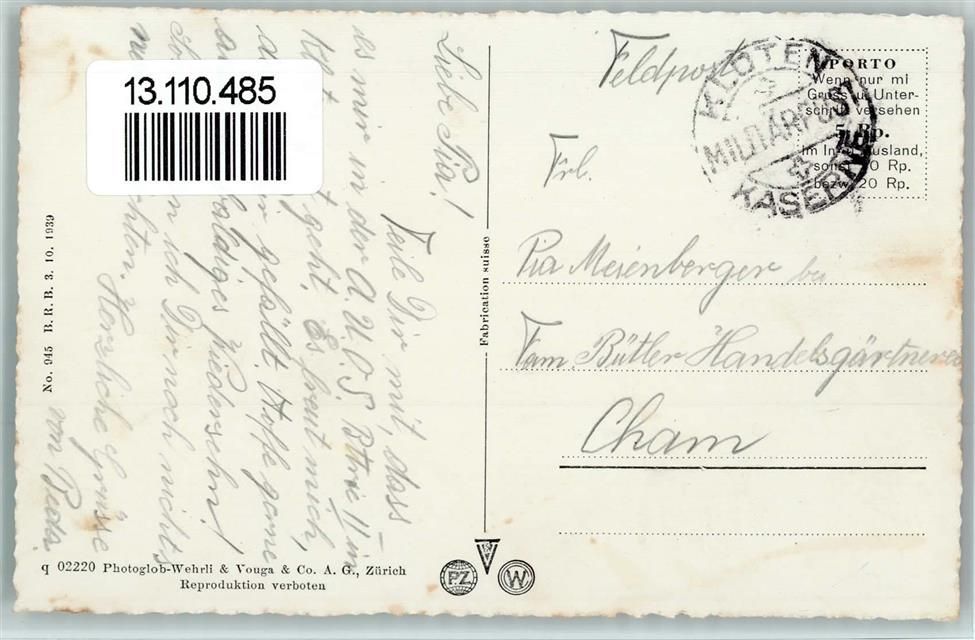 13.110.485
Feldpost
KLOTEN
MILITÄRPOST
KASERNE
PORTO
Wenn nur mi
Gruss u. Unter-
schrift versehen
5 Rp.
im In- u. Ausland,
sonst 10 Rp.
bezw. 20 Rp.
Frl.
Pia Meienberger bei
Fam. Bütler Handelsgärtnerei
Cham
Liebe Pia!
Teile Dir mit, dass
es mir in der A. U.O.S. Bttrie 11 in
geht. Es freut mich,
gefällt. Hoffe gerne
baldiges Wiedersehn!
ich Dir noch nichts
Herzliche Grüsse
von Beda
No. 945 B. R. B. 3. 10. 1939
Fabrication suisse
q 02220 Photoglob-Wehrli & Vouga & Co. A. G., Zürich
Reproduktion verboten
PZ
V
W